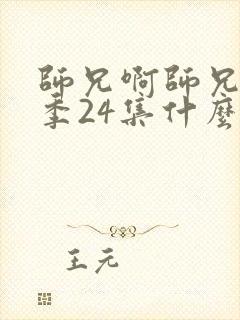 師兄啊師兄
季24集什麼
王元